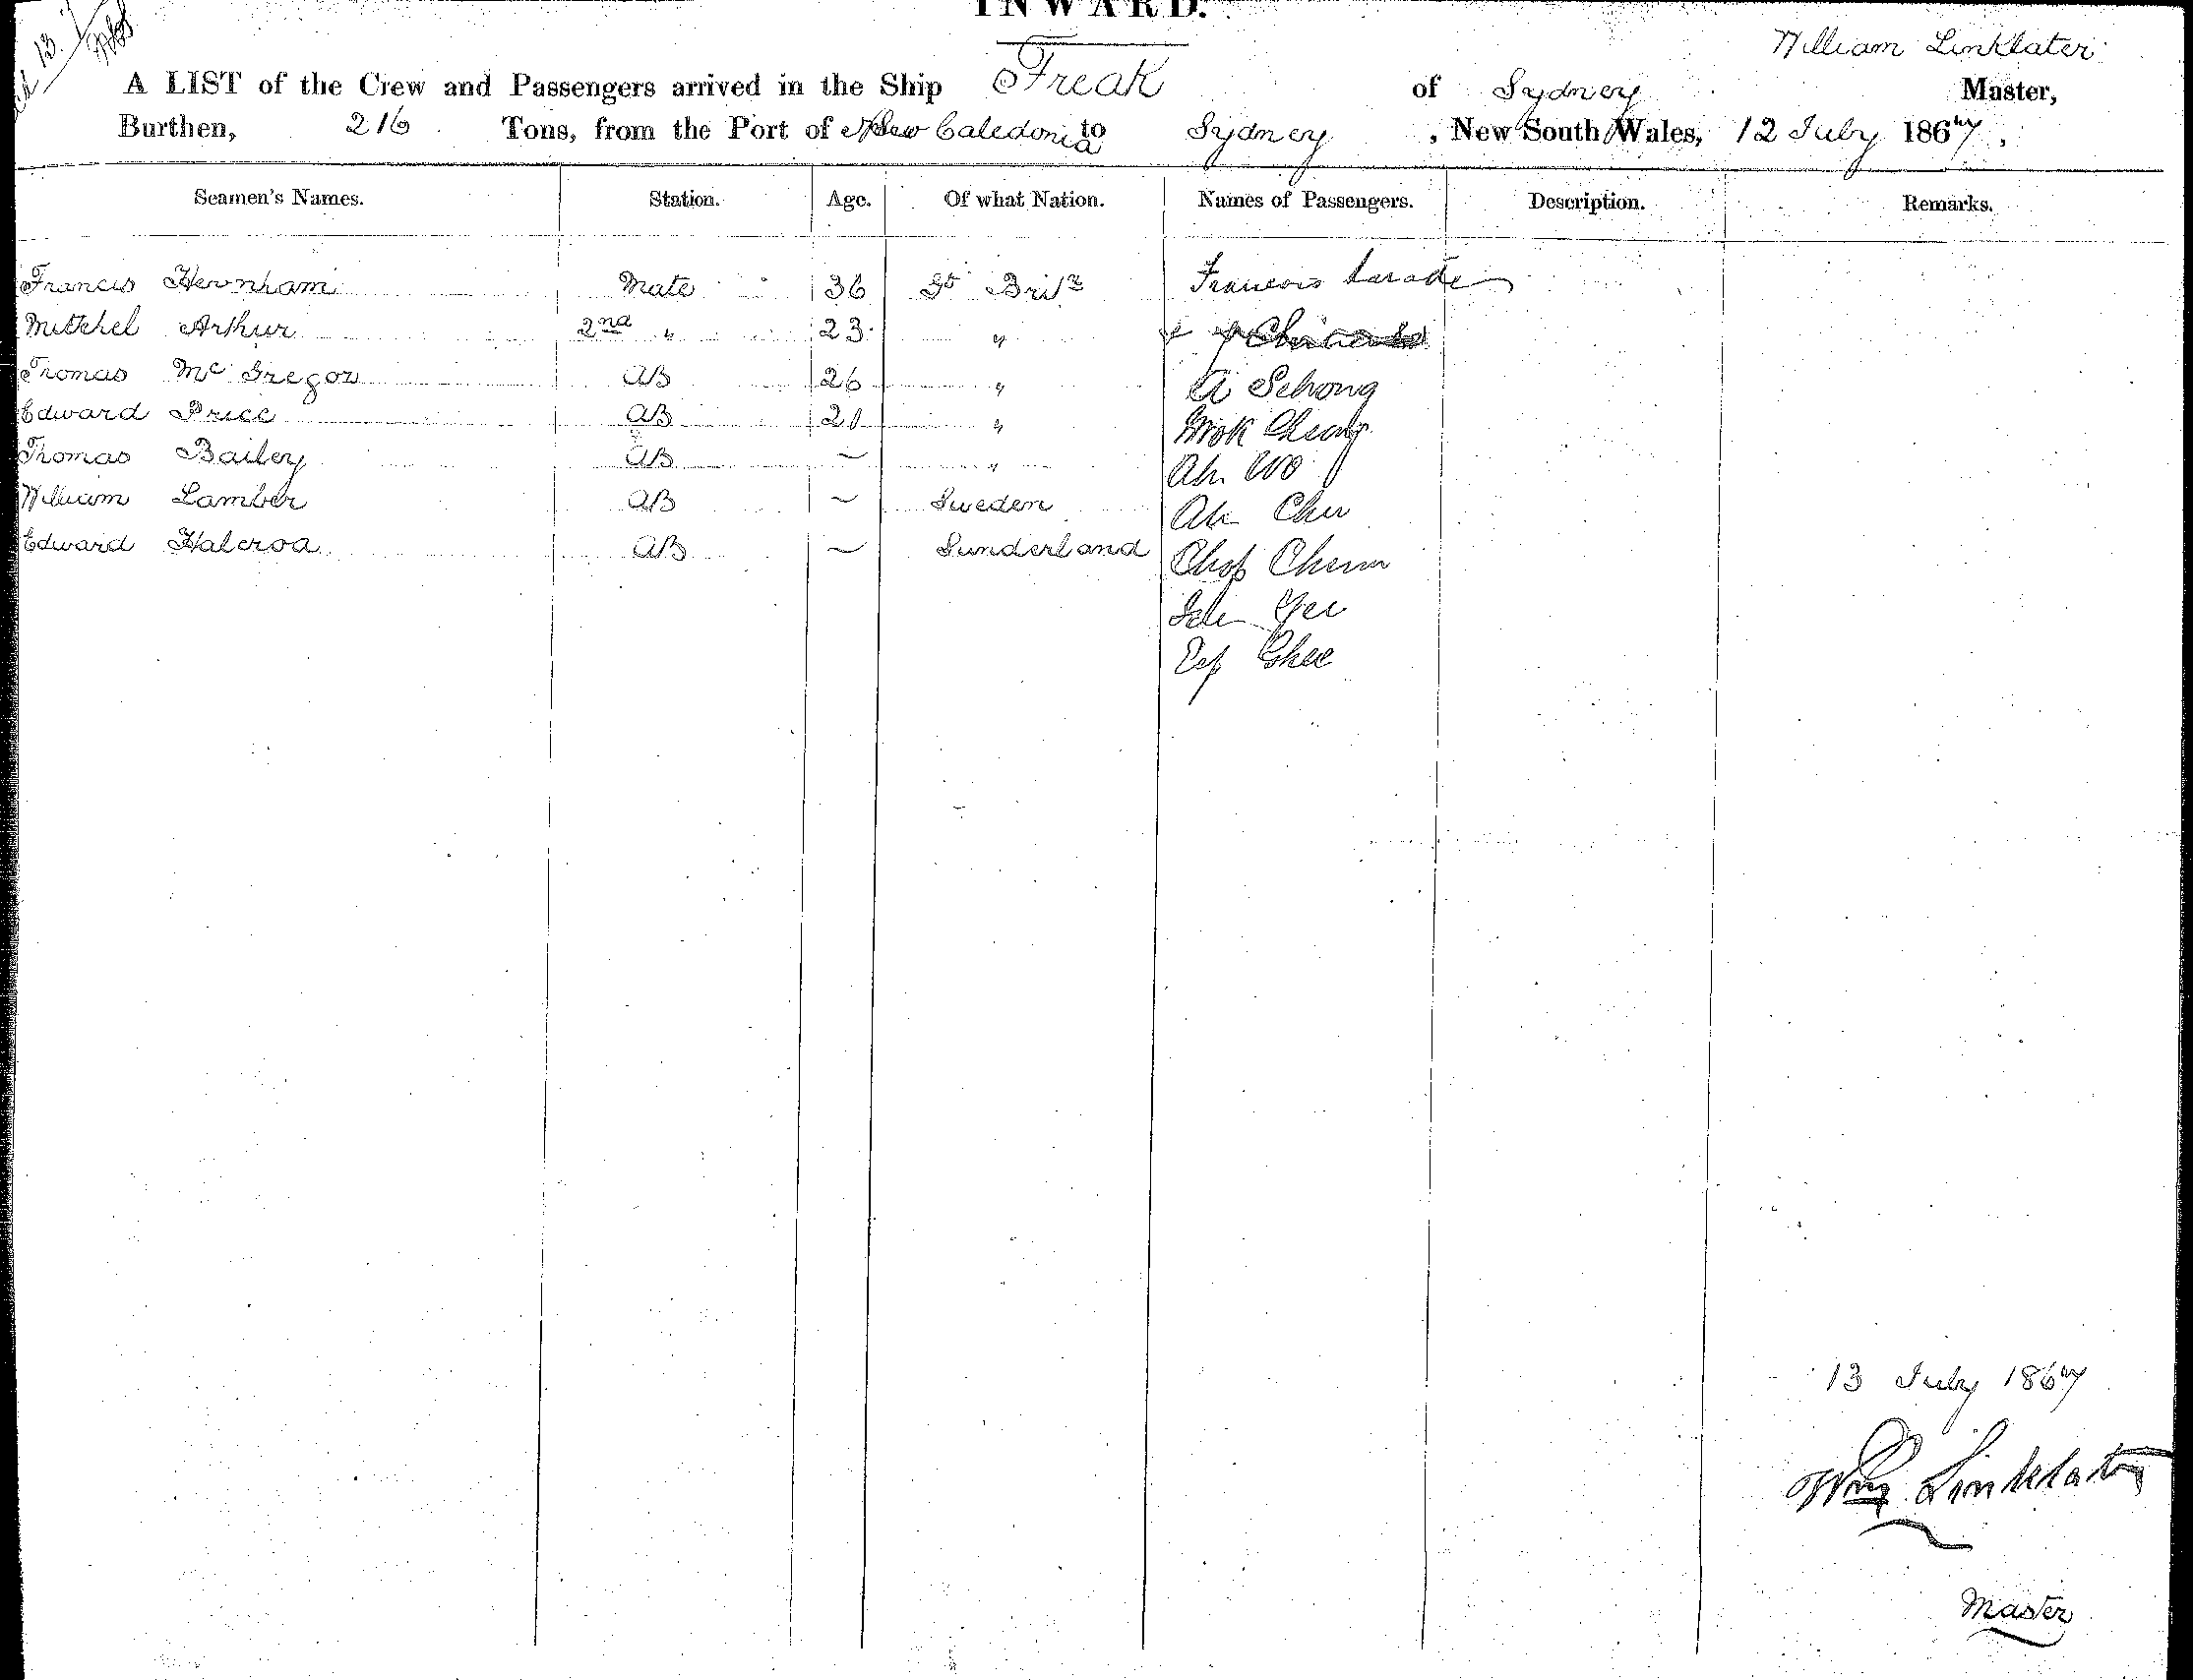 INWARD.
13
William Linklater
A LIST of the Crew and Passengers arrived in the Ship Freak of Sydney Master,
Burthen, 216 Tons, from the Port of New Caledonia to Sydney , New South Wales, 12 July 1867 ,
Seamen's Names. Station. Age. Of what Nation. Names of Passengers. Description. Remarks.
Francis Hernham Mate 36 Gt Britn Francois
Mitchel Arthur 2nd " 23 "
Thomas McGregor AB 26 " A Schong
Edward Price AB 21 "
Thomas Bailey AB ~ " Ah Wo
William Lamber AB ~ Sweden Ah Chu
Edward Halcroa AB ~ Sunderland Chop Chum
Yee
Ghee
13 July 1867
Wm Linklater
Master